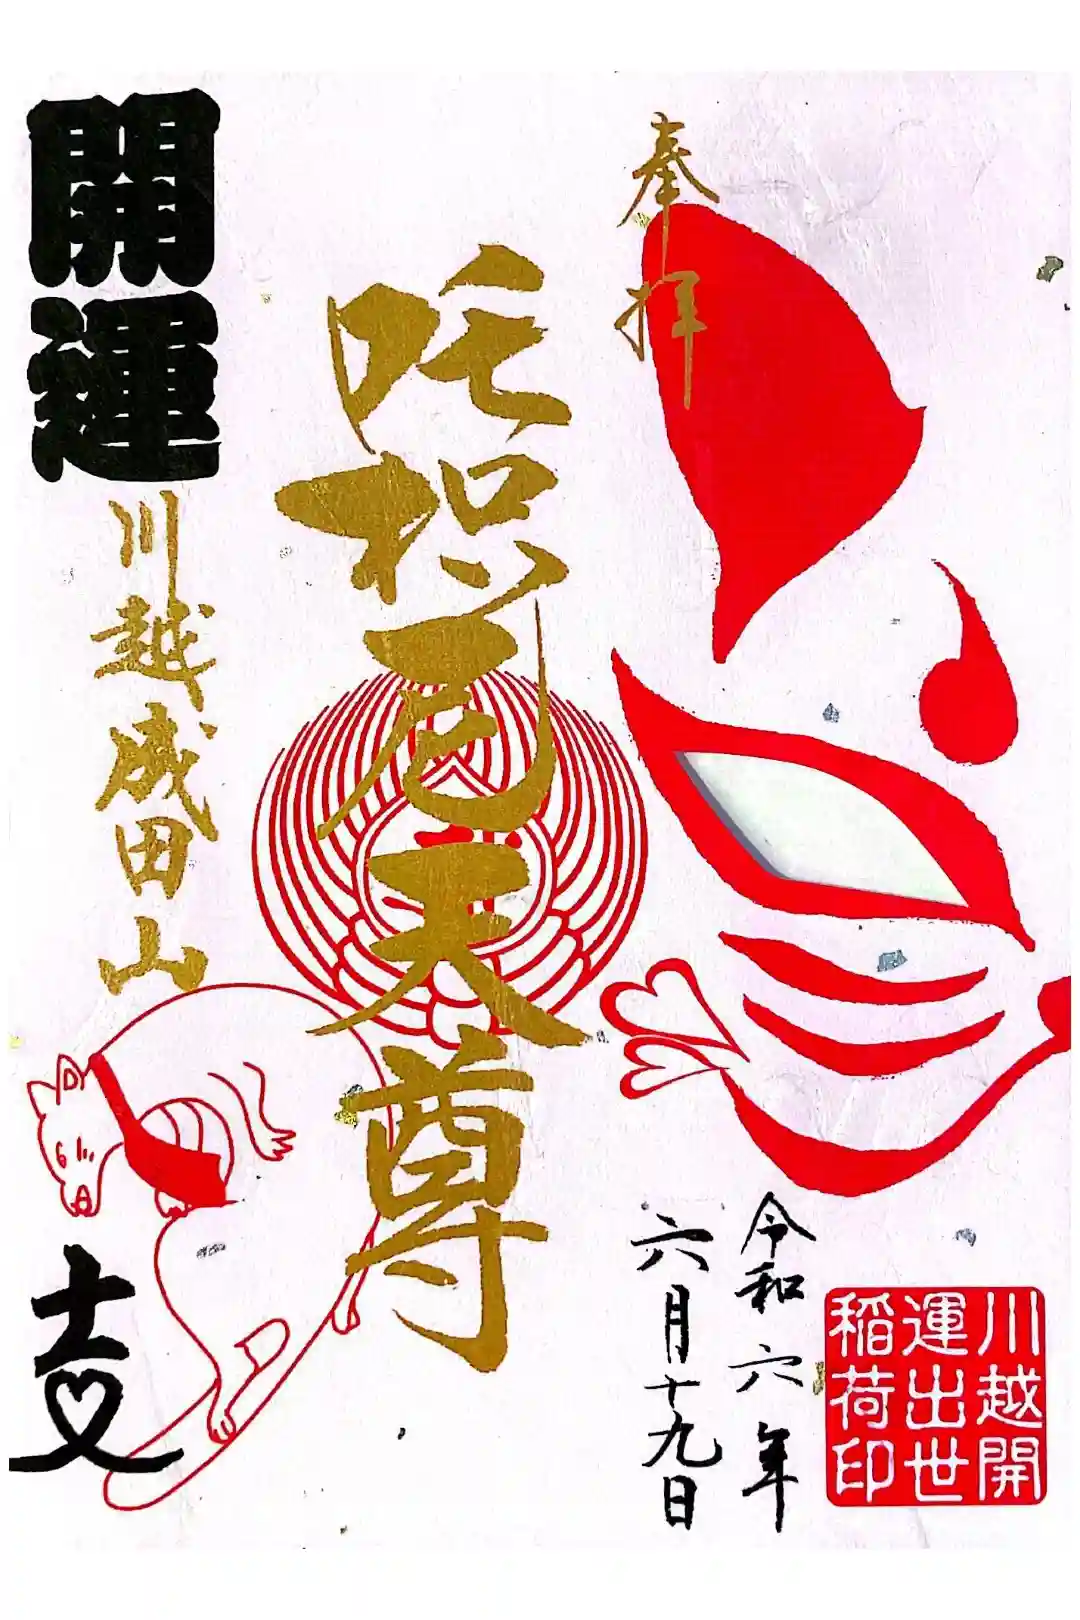 奉拝
令和六年
六月十九日
川越開
運出世
稲荷印
吒枳尼天尊
開運
川越成田山